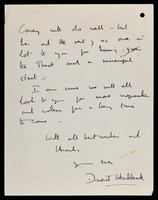 Covey will do well – but
he and the rest of us owe a
lot to you for having given
the Trust such a successful
start –
I am sure we will all
look to you for more inspiration
and wisdom for a long time
to come –
With all best wishes and
thanks
Yours ever